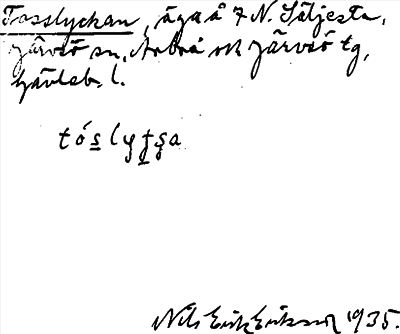 Tosslyckan, äga å 7 N. Säljesta,
Järvsö sn, Arbrå och Järvsö tg,
Gävleb. l.
tóslytsa
Nils Erik Eriksson 1935.